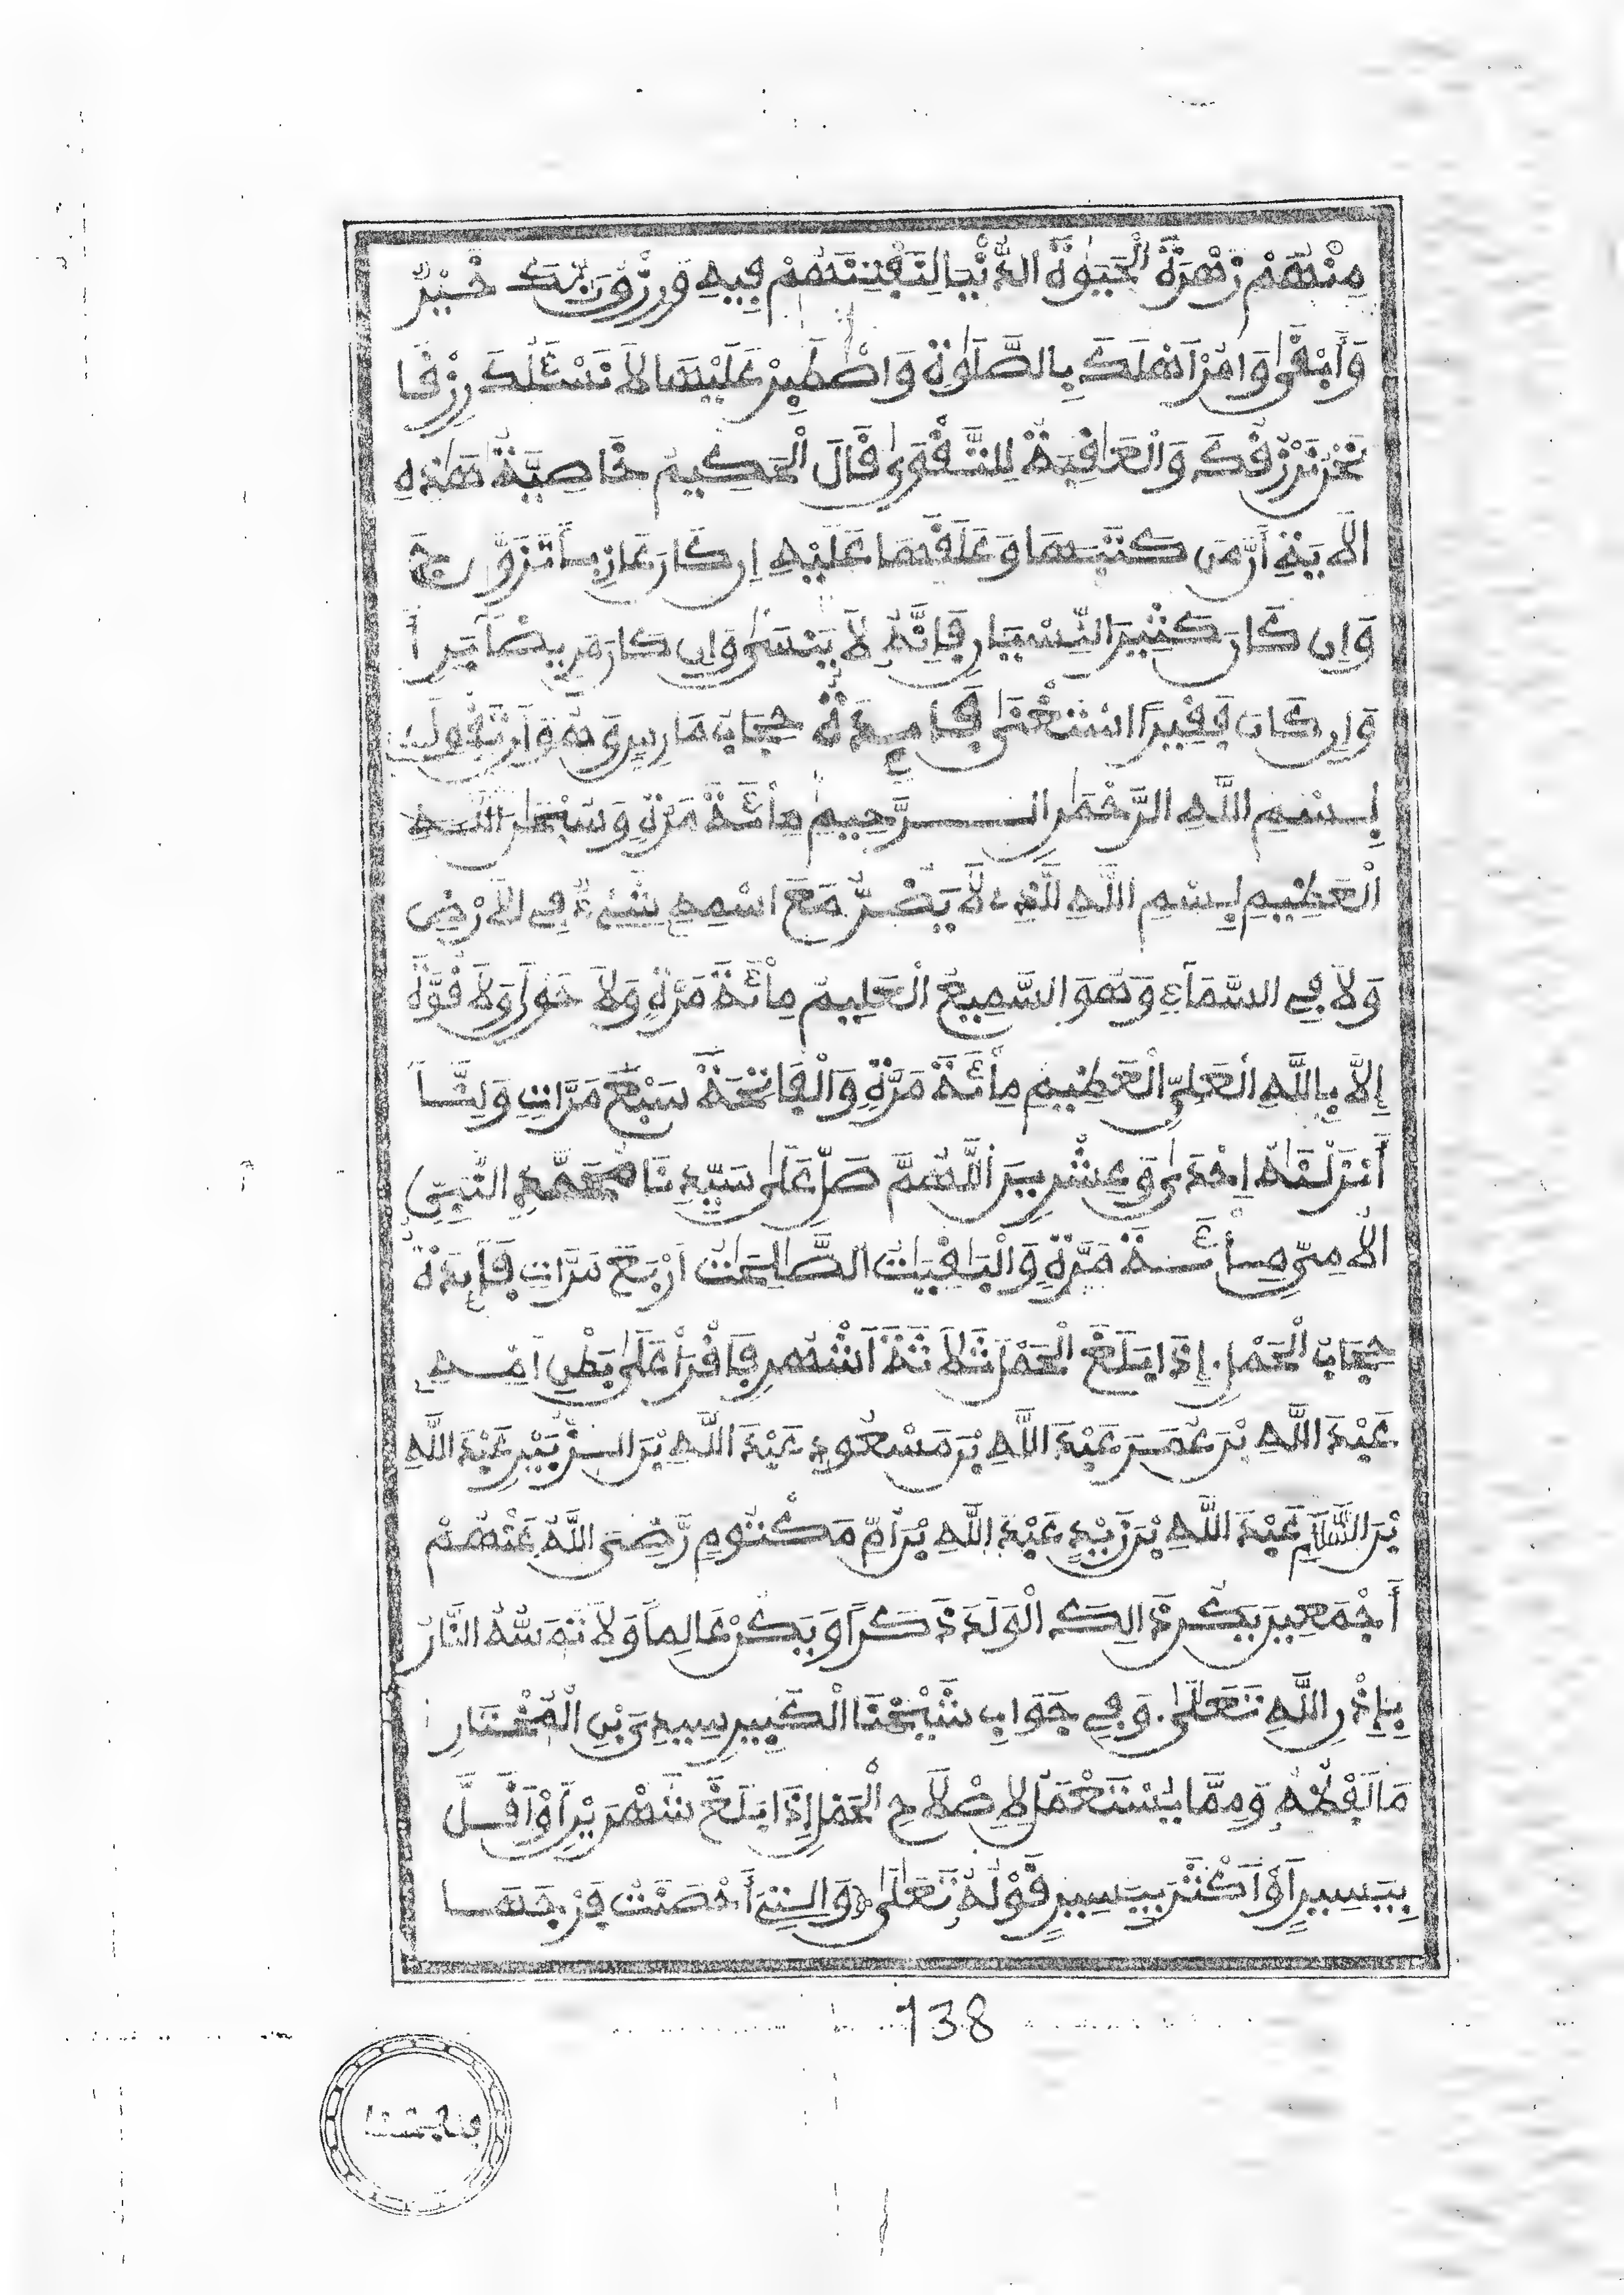 مِنْهُمْ زَهْرَةَ الْحَيَوٰةِ الدُّنْيَا لِنَفْتِنَهُمْ فِيهِ وَرِزْقُ رَبِّكَ خَيْرٌ
وَأَبْقَىٰ وَامُرَ اَهْلَكَ بِالصَّلَوٰةِ وَاصْطَبِرْ عَلَيْهَا لاَ نَسْـَٔلُكَ رِزْقًا
نَحْنُ نَرْزُقُكَ وَالْعَاقِبَةُ لِلتَّقْوَىٰ قَالَ الْحَكِيمُ خَاصِيَّةُ هَذِهِ
الاَيَةِ أَنَّ مَن كَتَبَهَا وَعَلَّقَهَا عَلَيْهِ إِن كَانَ عَازِبًا تَزَوَّجَ
وَإِن كَانَ كَثِيرَ النِّسْيَانِ فَإِنَّهُ لاَ يَنْسَىٰ وَإِن كَانَ مَرِيضًا بَرِأَ
وَإِن كَانَ فَقِيرًا اسْتَغْنَىٰ فَايِدَةُ حِجَابِ مَارِيرٍ وَهُوَ أَن تَقُولَ
بِسْمِ اللَّهِ الرَّحْمَٰنِ الرَّحِيمِ مِائَةَ مَرَّةٍ وَسُبْحَٰنَ اللَّهِ
الْعَظِيمِ بِسْمِ اللَّهِ الَّذِي لاَ يَضُرُّ مَعَ اسْمِهِ شَيْءٌ فِي الاَرْضِ
وَلاَ فِي السَّمَآءِ وَهُوَ السَّمِيعُ الْعَلِيمُ مِائَةَ مَرَّةٍ وَلاَ حَوْلَ وَلاَ قُوَّةَ
إِلاَّ بِاللَّهِ الْعَلِيِّ الْعَظِيمِ مِائَةَ مَرَّةٍ وَالْفَاتِحَةَ سَبْعَ مَرَّاتٍ وَإِنَّا
أَنزَلْنَٰهُ إِحْدَىٰ وَعِشْرِينَ اللَّهُمَّ صَلِّ عَلَىٰ سَيِّدِنَا مُحَمَّدٍ النَّبِيِّ
الاُمِّيِّ مِائَةَ مَرَّةٍ وَالْبَٰقِيَٰتُ الصَّٰلِحَٰتُ أَرْبَعَ مَرَّاتٍ فَايِدَةُ
حِجَابِ الْحَمْلِ. إِذَا بَلَغَ الْحَمْلُ ثَلاَثَةَ أَشْهُرٍ فَاقْرَأْ عَلَىٰ بَطْنِ أُمِّهِ
عَبْدَ اللَّهِ بْنَ عُمَرَ عَبْدَ اللَّهِ بْنَ مَسْعُودٍ عَبْدَ اللَّهِ بْنَ الزُّبَيْرِ عَبْدَ اللَّهِ
بْنَ السَّلاَمِ عَبْدَ اللَّهِ بْنَ زَيْدٍ عَبْدَ اللَّهِ بْنَ أُمِّ مَكْتُومٍ رَّضِيَ اللَّهُ عَنْهُمْ
أَجْمَعِينَ يَكُنْ ذَالِكَ الْوَلَدُ ذَكَرًا وَيَكُنْ عَالِمًا وَلاَ تَمَسُّهُ النَّارُ
بِإِذْنِ اللَّهِ تَعَلَىٰ. وَفِي جَوَابِ شَيْخِنَا الْكَبِيرِ سِيدِي بْنِ الْمُخْتَارِ
مَا لَفْظُهُ وَمِمَّا يُسْتَعْمَلُ لإِصْلاَحِ الْحَمْلِ إِذَا بَلَغَ شَهْرَيْنِ أَوْ أَقَلَّ
بِيَسِيرٍ أَوْ أَكْثَرَ بِيَسِيرٍ قَوْلُهُ تَعَلَىٰ وَالتِي أَحْصَنَتْ فَرْجَهَا
138